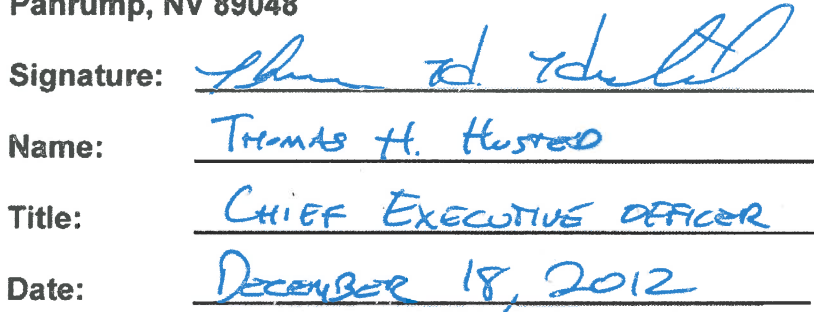 Pahrump, NV 89048
Signature: Thomas H. Husted
Name: Thomas H. Husted
Title: Chief Executive Officer
Date: December 18, 2012